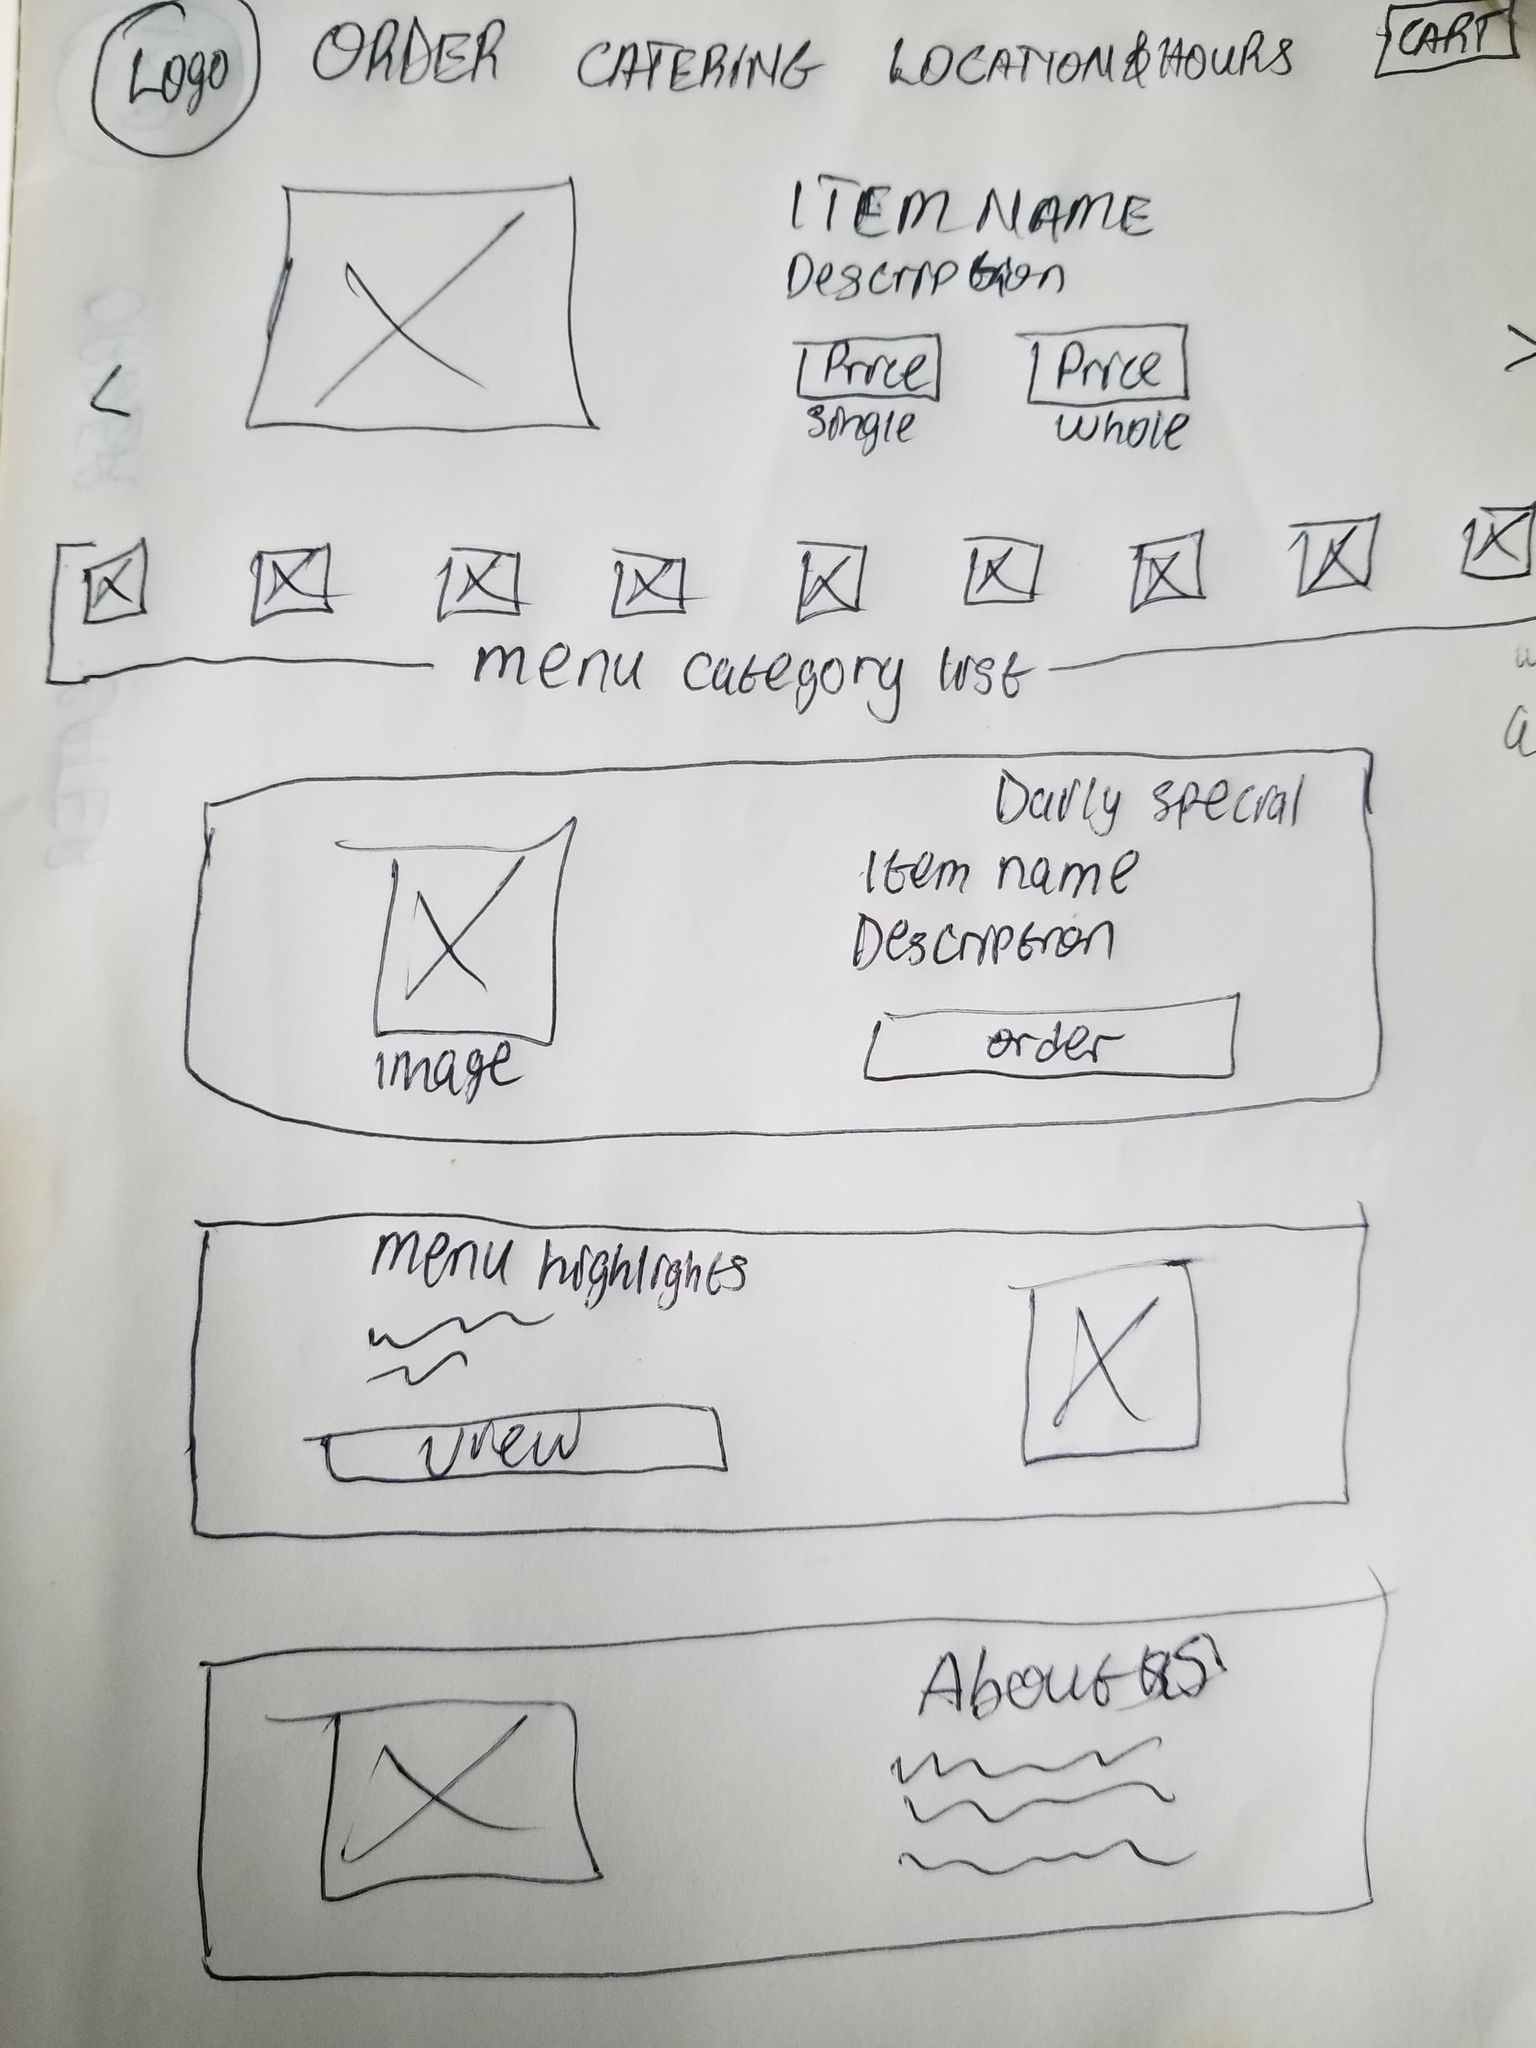 Logo ORDER CATERING LOCATION & HOURS CART
ITEM NAME
Description
< Price Price >
single whole
menu category list
Daily special
Item name
Description
order
image
menu highlights
view
About us